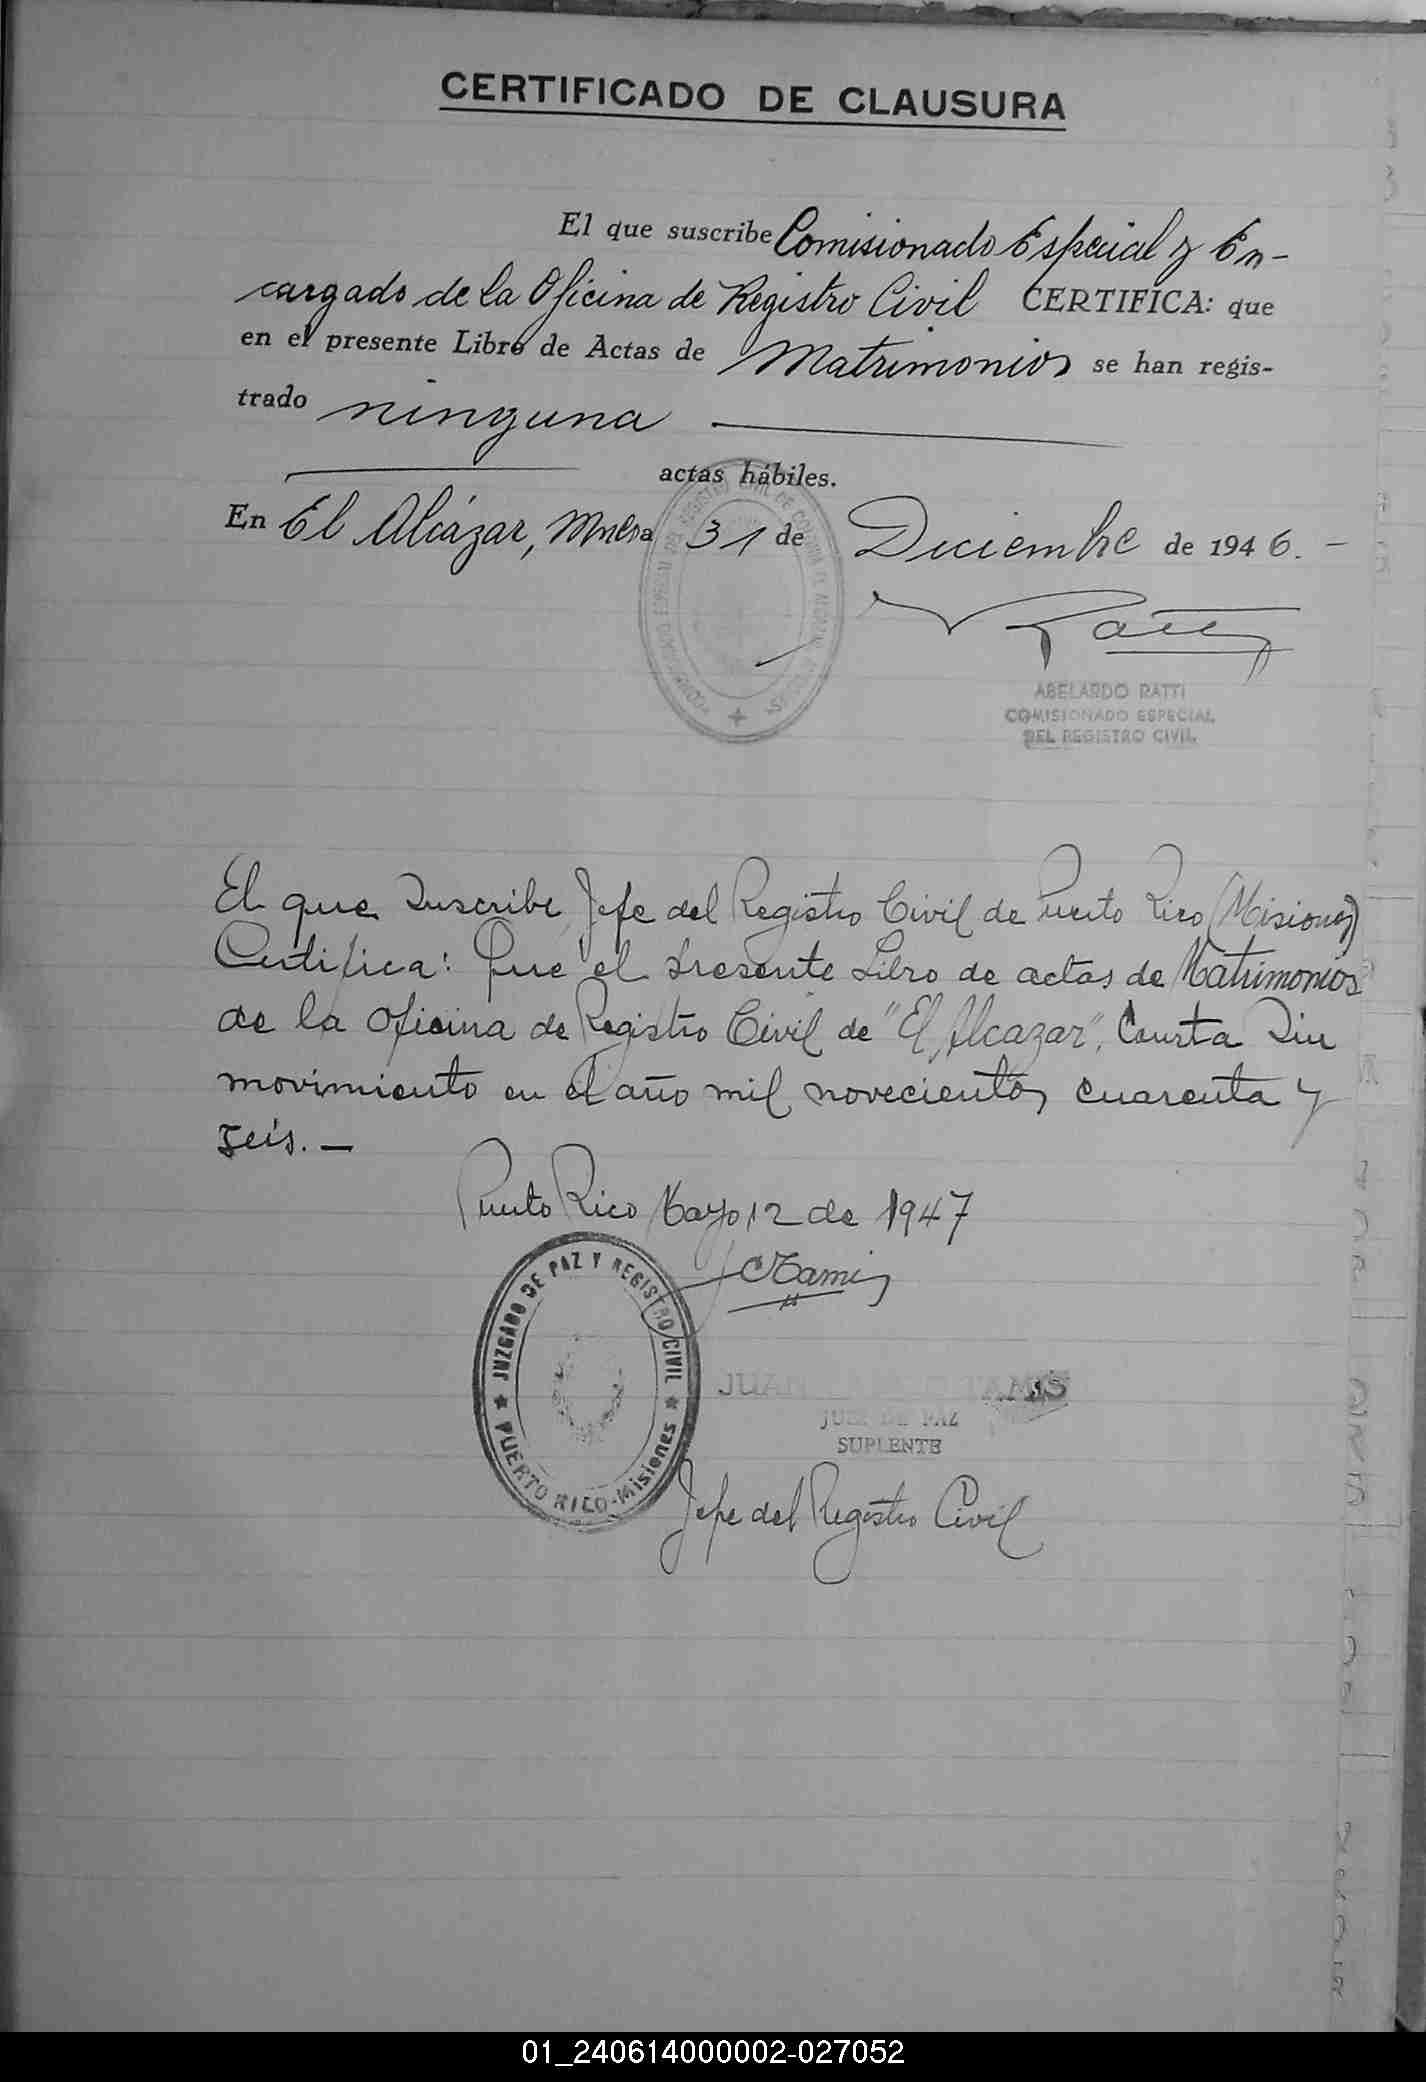 CERTIFICADO DE CLAUSURA
El que suscribe Comisionado Especial y En-
cargado de la Oficina de Registro Civil CERTIFICA: que
en el presente Libro de Actas de Matrimonios se han regis-
trado ninguna
actas hábiles.
En El Alcázar, Mnes a 31 de Diciembre de 1946. -
Ratti
ABELARDO RATTI
COMISIONADO ESPECIAL
DEL REGISTRO CIVIL
El que suscribe, Jefe del Registro Civil de Puerto Rico (Misiones)
Certifica: Que el presente Libro de actas de Matrimonios
de la Oficina de Registro Civil de "El Alcazar", Consta Sin
movimiento en el año mil novecientos cuarenta y
seis. —
Puerto Rico Mayo 12 de 1947
JUZGADO DE PAZ Y REGISTRO CIVIL
PUERTO RICO-Misiones
JUAN TAMIS
JUEZ DE PAZ
SUPLENTE
Jefe del Registro Civil
01_240614000002-027052